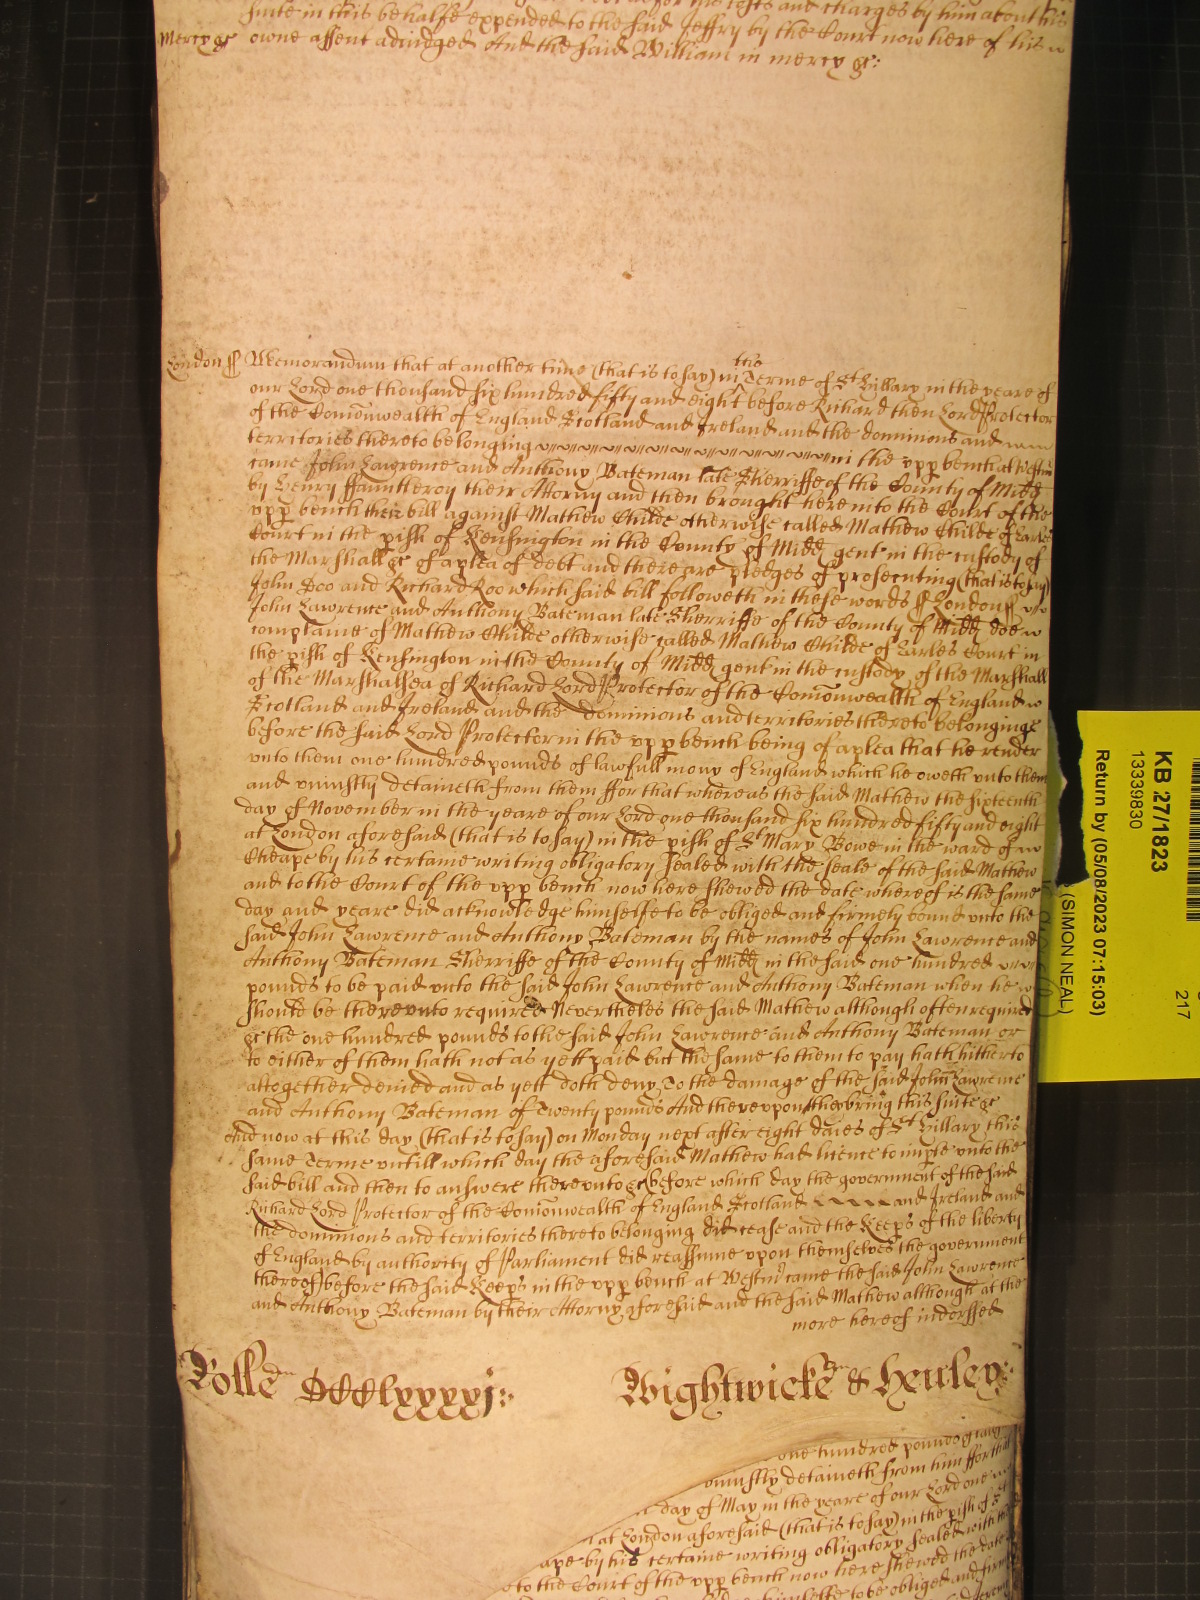 suite in this behalfe expended to the said Jeffry by the Court now here of his
Mercy &c owne assent adiudged And the said William in mercy &c:
London ss Memorandum that at another time (that is to say) in the Terme of St Hillary in the yeare of
our Lord one thousand six hundred fifty and eight before Richard then Lord Protector
of the Comonwealth of England Scotland and Ireland and the dominions and
territories thereto belonging in the upp bench at Westm
came John Lawrence and Anthony Bateman late Sherriffe of the County of Midd
by Henry ffauntleroy their Attorny and then brought here into the Court of the
upp bench their bill against Mathew Childe otherwise called Mathew Childe of Earles
Court in the pish of Kensington in the County of Midd gent in the custody of
the Marshall &c of a plea of debt and there are pledges of prosecuting (that is to say)
John Doo and Richard Roo which said bill followeth in these words ss London ss
John Lawrence and Anthony Bateman late Sherriffe of the County of Midd doe
complaine of Mathew Childe otherwise called Mathew Childe of Earles Court in
the pish of Kensington in the County of Midd gent in the custody of the Marshall
of the Marshalsea of Richard Lord Protector of the Comonwealth of England
Scotland and Ireland and the dominions and territories thereto belonginge
before the said Lord Protector in the upp bench being of a plea that he render
unto them one hundred pounds of lawfull mony of England which he oweth unto them
and uniustly detaineth from them ffor that whereas the said Mathew the sixteenth
day of November in the yeare of our Lord one thousand six hundred fifty and eight
at London aforesaid (that is to say) in the pish of St Mary Bowe in the ward of
Cheape by his certaine writing obligatory sealed with the seale of the said Mathew
and to the Court of the upp bench now here shewed the date whereof is the same
day and yeare did acknowledge himselfe to be obliged and firmely bound unto the
said John Lawrence and Anthony Bateman by the names of John Lawrence and
Anthony Bateman Sherriffe of the County of Midd in the said one hundred
pounds to be paid unto the said John Lawrence and Anthony Bateman when he
should be thereunto required Nevertheles the said Mathew although often required
&c the one hundred pounds to the said John Lawrence and Anthony Bateman or
to either of them hath not as yett paid but the same to them to pay hath hitherto
altogether denied and as yett doth deny To the damage of the said John Lawrence
and Anthony Bateman of Twenty pounds And thereupon they bring this suite &c
And now at this day (that is to say) on Monday next after eight daies of St Hillary this
same Terme untill which day the aforesaid Mathew had licence to imple unto the
said bill and then to answere thereunto &c (before which day the government of the said
Richard Lord Protector of the Comonwealth of England Scotland and Ireland and
the dominions and territories thereto belonging did cease and the Keeps of the liberty
of England by authority of Parliament did reassume upon themselves the government
thereof) before the said Keeps in the upp bench at Westm came the said John Lawrence
and Anthony Bateman by their Attorny aforesaid and the said Mathew although at the
more hereof indorssed
Rolle DCCClxxxxj: Wightwicke & Henley:
one hundred pounds
uniustly detaineth from him ffor that
day of May in the yeare of our Lord one
at London aforesaid (that is to say) in the pish of St
ape by his certaine writing obligatory sealed with
to the Court of the upp bench now here shewed the date
himselfe to be obliged and
KB 27/1823
13339830
Return by (05/08/2023 07:15:03)
(SIMON NEAL)
217